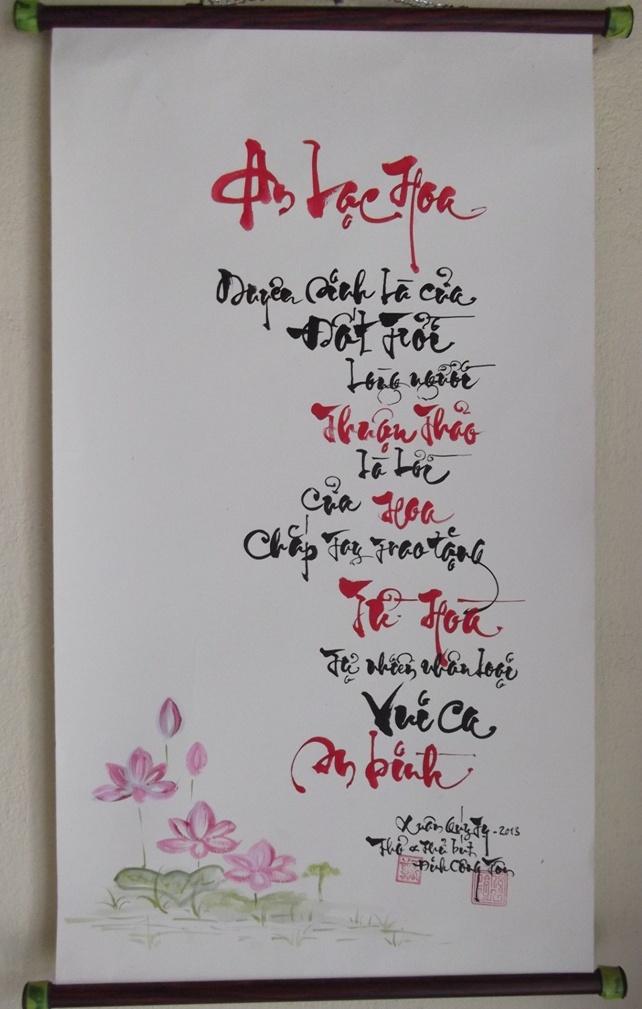 An Lạc Hoa
Duyên sinh là của
Đất Trời
Lòng người
Thuận Thảo
là lời
của Hoa
Chắp Tay Trao tặng
Tứ Hoà
Tự nhiên nhân loại
Vui Ca
An bình
Xuân Quý Tỵ - 2013
Thơ & Thư bút
Đinh Công Tôn